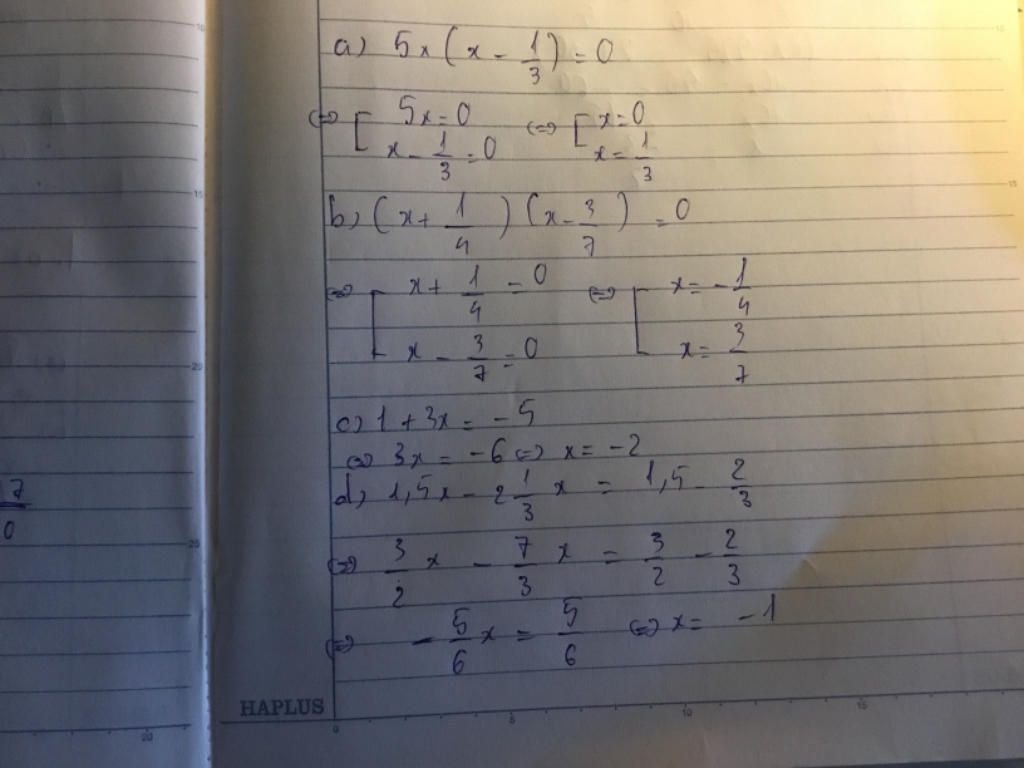 a) 5x(x - 1/3) = 0
⇔ [ 5x = 0 ⇔ [ x = 0
x - 1/3 = 0 x = 1/3
b) (x + 1/4) (x - 3/7) = 0
⇔ [ x + 1/4 = 0 ⇔ [ x = - 1/4
x - 3/7 = 0 x = 3/7
c) 1 + 3x = - 5
⇔ 3x = - 6 ⇔ x = - 2
d) 1,5x - 2 1/3 x = 1,5 - 2/3
⇔ 3/2 x - 7/3 x = 3/2 - 2/3
⇔ - 5/6 x = 5/6 ⇔ x = - 1
HAPLUS
0 5 10 15